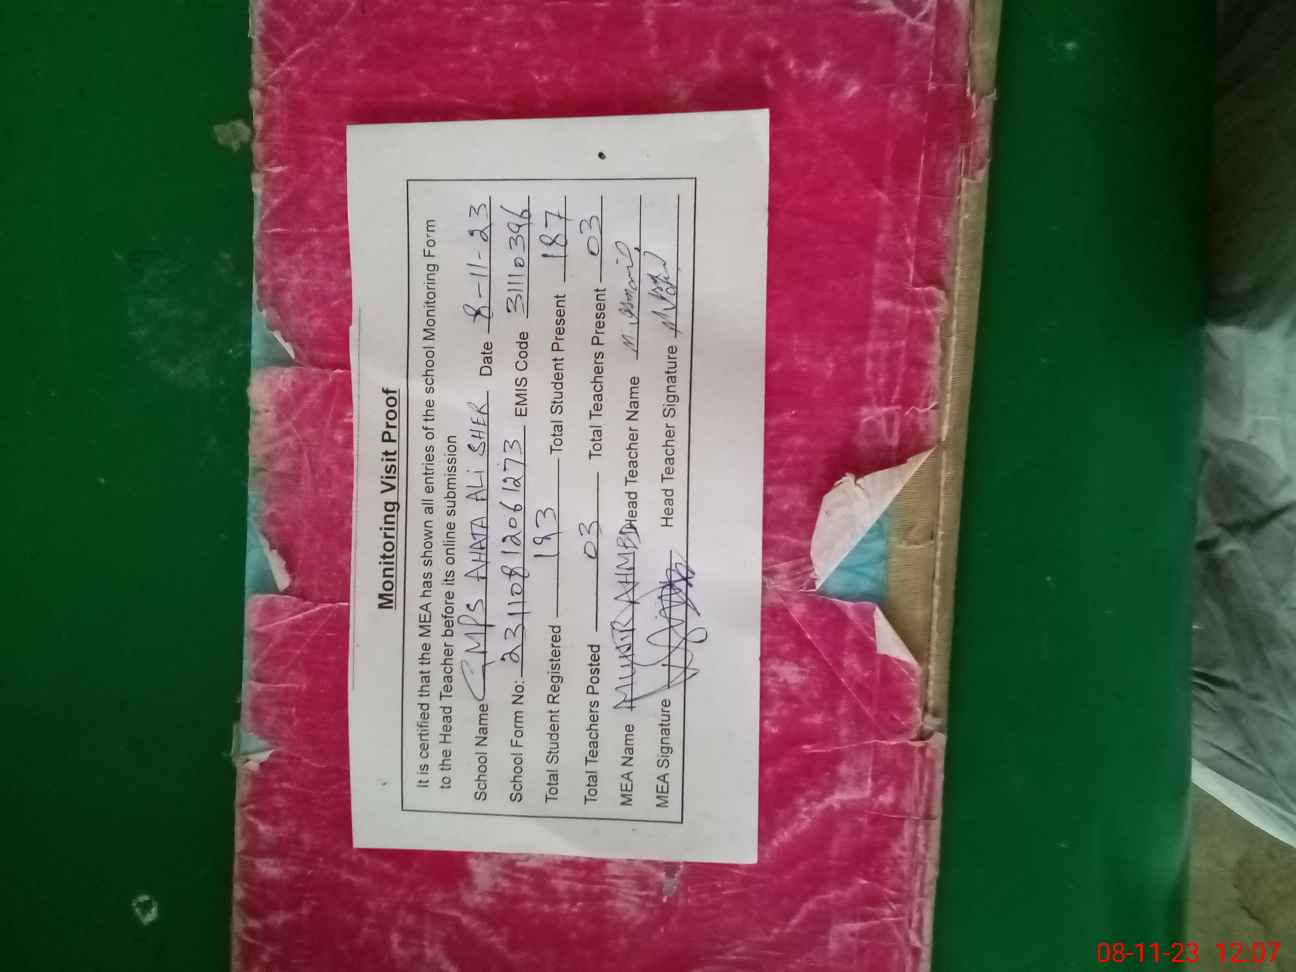 Monitoring Visit Proof
It is certified that the MEA has shown all entries of the school Monitoring Form
to the Head Teacher before its online submission
School Name GMPS AHATA ALI SHER Date 8-11-23
School Form No: 23110812061273 EMIS Code 31110396
Total Student Registered 193 Total Student Present 187
Total Teachers Posted 03 Total Teachers Present 03
MEA Name MUNIR AHMED Head Teacher Name
MEA Signature Head Teacher Signature
08-11-23 12:07